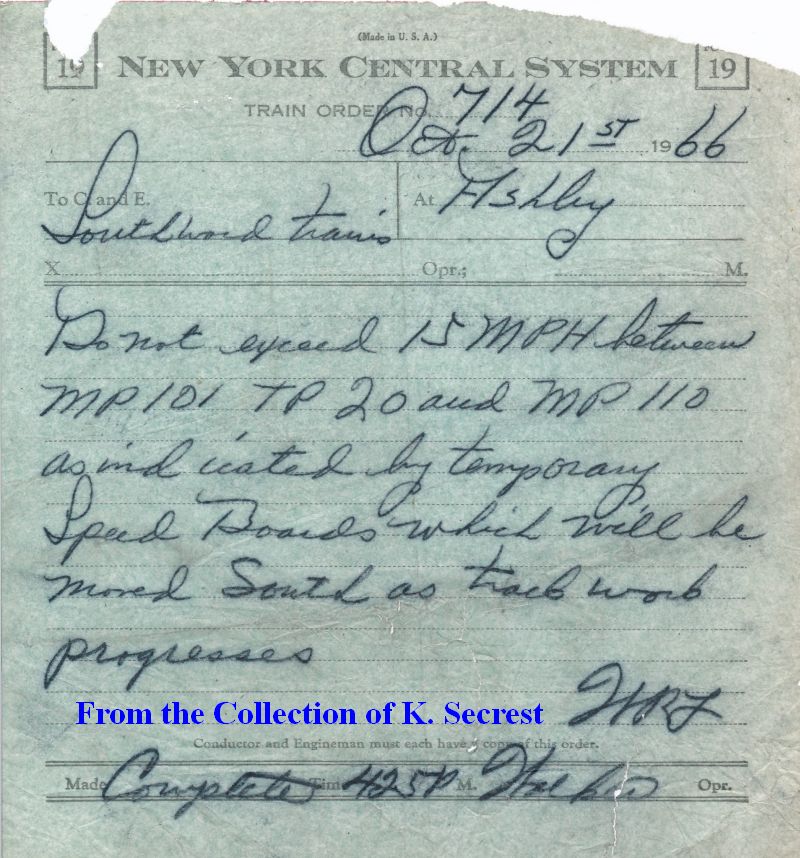 (Made in U. S. A.)
19 NEW YORK CENTRAL SYSTEM 19
TRAIN ORDER No. 714
Oct. 21ST 1966
To C. and E. At Ashby
Southward trains
X Opr.; M.
Do not exceed 15 MPH between
MP 101 TP 20 and MP 110
as indicated by temporary
Speed Boards which will be
moved South as track work
progresses
From the Collection of K. Secrest
Conductor and Engineman must each have a copy of this order.
Made Complete Time 425P M. Opr.